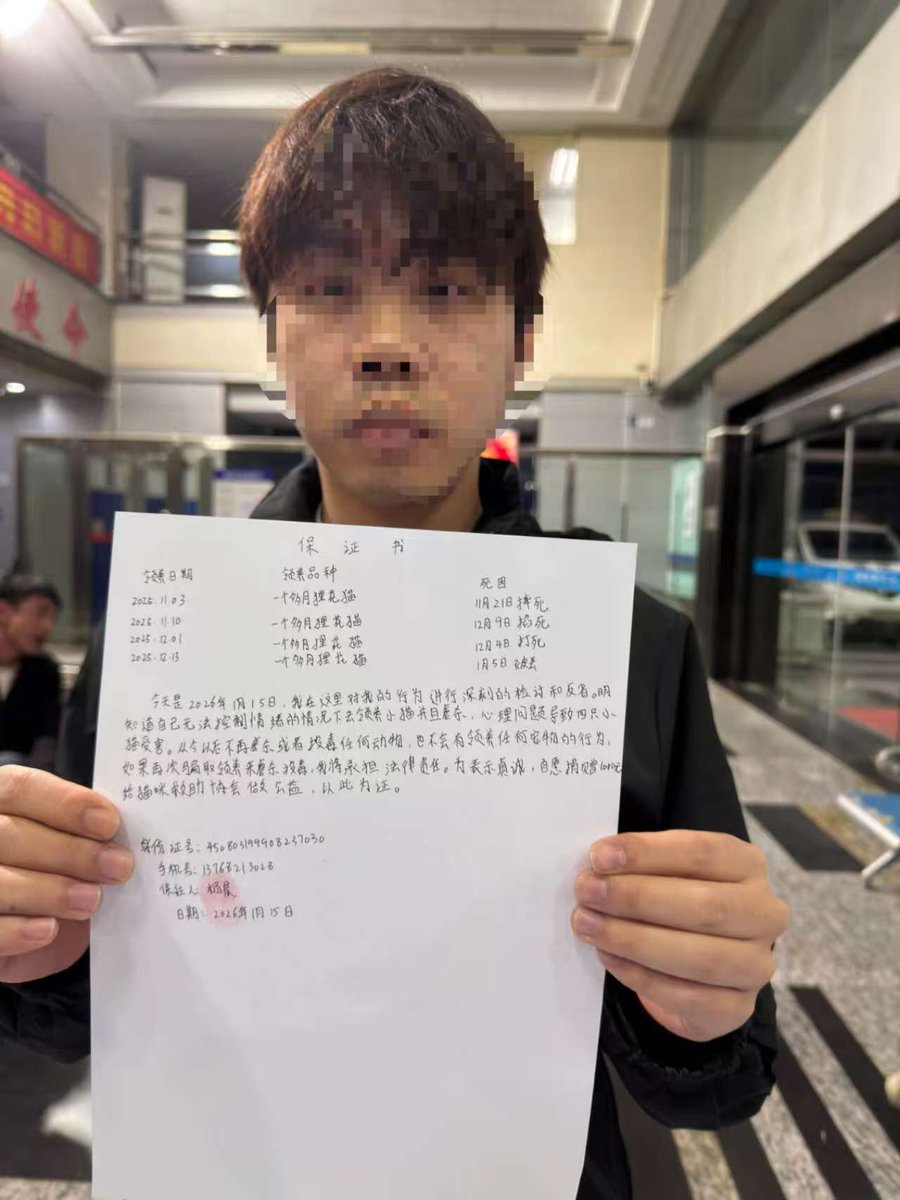 使命
保证书
领养日期 领养品种 死因
2025.11.03 一个多月狸花猫 11月21日摔死
2025.11.10 一个多月狸花猫 12月9日掐死
2025.12.01 一个多月狸花猫 12月4日打死
2025.12.13 一个多月狸花猫 1月5日
今天是2026年1月15日，我在这里对我的行为进行深刻的检讨和反省。明
知道自己无法控制情绪的情况下去领养小猫并且虐杀，心理问题导致四只小
猫受害。从今以后不再虐杀或者投毒任何动物，也不会有领养任何宠物的行为，
如果再次骗取领养来虐杀投毒，我将承担法律责任。为表示真诚，自愿捐赠
给猫咪救助协会做公益，以此为证。
身份证号：450803199908237030
手机号：13768213028
保证人：
日期：2026年1月15日